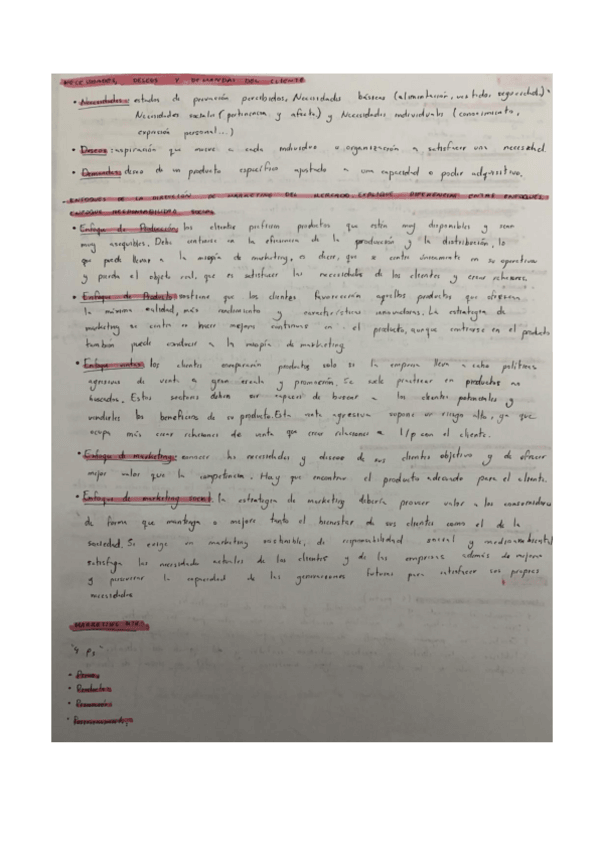 NECESIDADES, DESEOS Y DEMANDAS DEL CLIENTE
• Necesidades: estados de privación percibidos. Necesidades básicas (alimentación, vestidos, seguridad).
Necesidades sociales (pertenencia y afecto) y Necesidades individuales (conocimiento,
expresión personal...)
• Deseos: inspiración que mueve a cada individuo u organización a satisfacer una necesidad.
• Demandas: deseo de un producto específico ajustado a una capacidad o poder adquisitivo.
ENFOQUES DE LA DIRECCIÓN DE MARKETING DEL MERCADO. EXPLIQUE DIFERENCIAS ENTRE ENFOQUES.
ENFOQUE RESPONSABILIDAD SOCIAL
• Enfoque de Producción: los clientes prefieren productos que estén muy disponibles y sean
muy asequibles. Debe centrarse en la eficiencia de la producción y la distribución, lo
que puede llevar a la miopía de marketing, es decir, que se centre únicamente en su operativa
y pierda el objeto real, que es satisfacer las necesidades de los clientes y crear relaciones.
• Enfoque de Producto: sostiene que los clientes favorecerán aquellos productos que ofrezcan
la máxima calidad, más rendimiento y características innovadoras. La estrategia de
marketing se centra en hacer mejoras continuas en el producto, aunque centrarse en el producto
también puede conducir a la miopía de marketing.
• Enfoque ventas: los clientes comprarán productos solo si la empresa lleva a cabo políticas
agresivas de venta a gran escala y promoción. Se suele practicar en productos no
buscados. Estos sectores deben ser capaces de buscar a los clientes potenciales y
venderles los beneficios de su producto. Esta venta agresiva supone un riesgo alto, ya que
ocupa más crear relaciones de venta que crear relaciones a l/p con el cliente.
• Enfoque de marketing: conocer las necesidades y deseos de sus clientes objetivo y de ofrecer
mejor valor que la competencia. Hay que encontrar el producto adecuado para el cliente.
• Enfoque de marketing social: la estrategia de marketing debería proveer valor a los consumidores
de forma que mantenga o mejore tanto el bienestar de sus clientes como el de la
sociedad. Se exige un marketing sostenible, de responsabilidad social y medioambiental
satisfaga las necesidades actuales de los clientes y de las empresas además de mejorar
y preservar la capacidad de las generaciones futuras para satisfacer sus propias
necesidades
MARKETING MIX
"4 Ps"
• Precio
• Producto
• Promoción